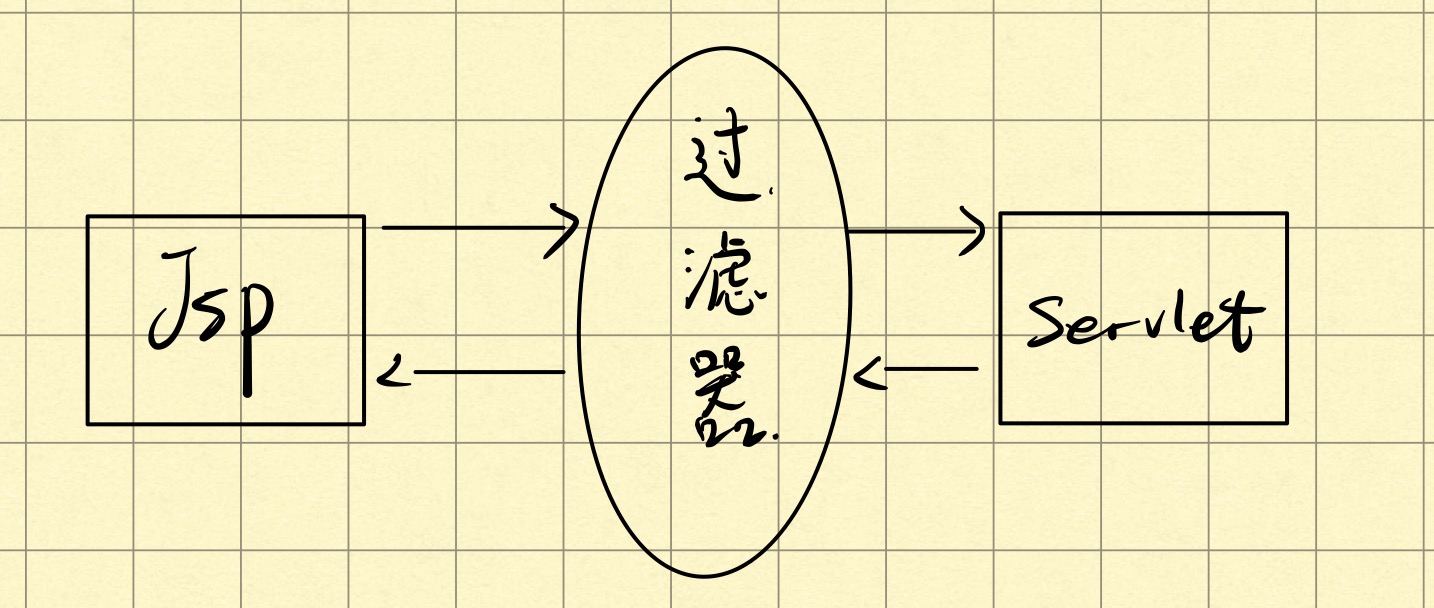 Jsp
过
滤
器
Servlet